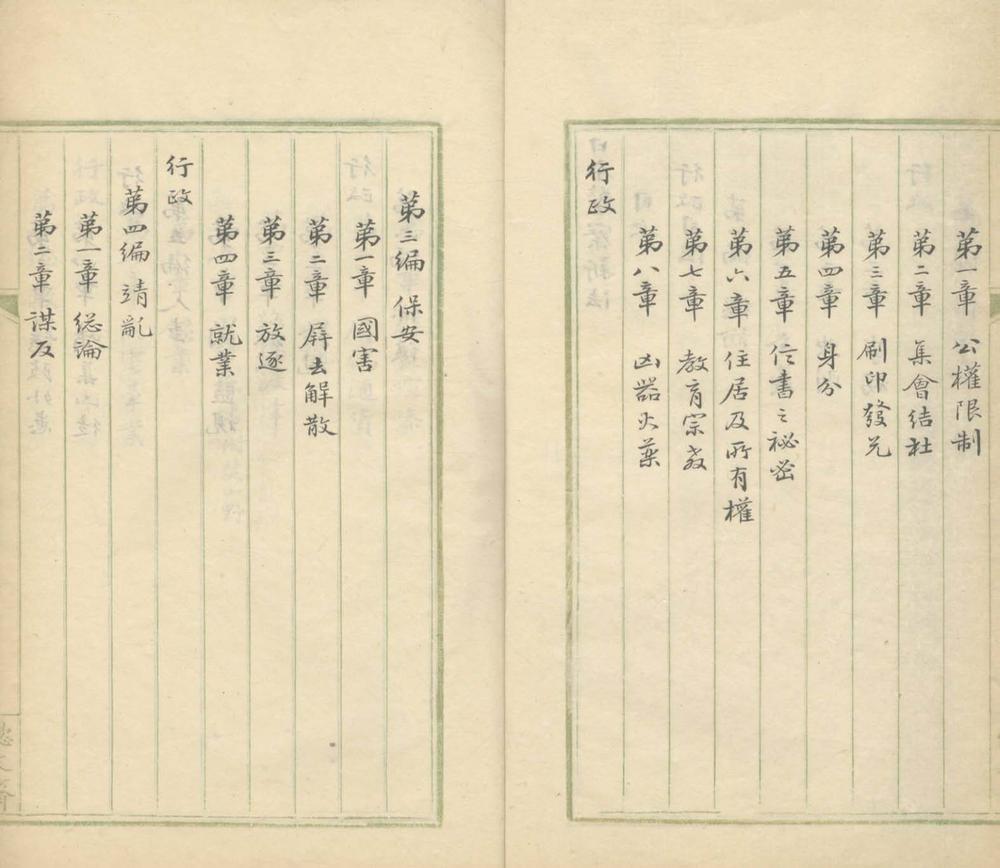 第一章 公權限制
第二章 集會結社
第三章 刷印發兌
第四章 身分
第五章 信書之祕密
第六章 住居及所有權
第七章 教育宗教
第八章 凶器火藥
行政
第三編 保安
第一章 國害
第二章 屏去解散
第三章 放逐
第四章 就業
行政
第四編 靖亂
第一章 総論
第二章 謀反